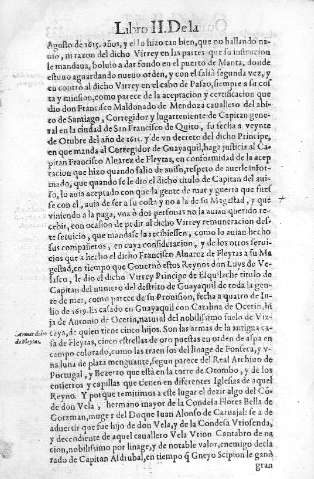 Libro II. De la
Agosto de 1615. años, y el lo hizo tan bien, que no hallando na-
uio, ni razon del dicho Virrey en las partes que su instruccion
le mandaua, boluio a dar fondo en el puerto de Manta, donde
estuuo aguardando nueuo orden, y con el salió segunda vez, y
encontró al dicho Virrey en el cabo de Passao, siempre a su cos
ta y mission, como parece de la aceptacion y certificacion que
dio don Francisco Maldonado de Mendoza cauallero del abi-
to de Santiago, Corregidor y lugarteniente de Capitan gene-
ral en la ciudad de San Francisco de Quito, su fecha a veynte
de Octubre del año de 1615. y de vn decreto del dicho Principe,
en que manda al Corregidor de Guayaquil, haga justicia al Ca-
pitan Francisco Aluarez de Fleytas, en conformidad de la acep
tacion que hizo quando salio de auiso, respeto de auerle infor-
mado, que quando se le dio el dicho titulo de Capitan del aui-
so, lo auia aceptado con que la gente de mar y guerra que fuesse
se con el, auia de ser a su costa y no a la de su Magestad, y que
viniendo a la paga, vna ò dos personas no la auian querido re-
cebir, con ocasion de pedir al dicho Virrey remuneracion des-
te seruicio, que mandasse la recibiessen, como lo auian hecho
sus compañeros, en cuya consideracion, y de los otros serui-
cios que a hecho el dicho Francisco Aluarez de Fleytas a su Ma
gestad, en tiempo que Gouernó estos Reynos don Luys de Ve-
lasco, le dio el dicho Virrey Principe de Esquilache titulo de
Capitan del numero del distrito de Guayaquil de toda la gen-
te de mer, como parece de su Prouision, fecha a quatro de Iu-
lio de 1619. Es casado en Guayaquil con Catalina de Ocerin, hi-
ja de Antonio de Ocerin, natural del nobilissimo suelo de Viz-
caya, de quien tiene cinco hijos. Son las armas de la antigua ca-
sa de Fleytas, cinco estrellas de oro puestas en orden de aspa en
campo colorado, como las traen los del linage de Fonseca, y v-
na luna de plata menguante, segun parece del Real Archiuo de
Portugal, y Rezerro que está en la torre de Otombo, y de los
entierros y capillas que tienen en diferentes Iglesias de aquel
Reyno. Y porque remitimos a este lugar el dezir algo del Cõ
de don Vela, hermano mayor de la Condesa Flores Bella de
Guzman, muger del Duque Iuan Alonso de Caruajal: se a de
aduertir que fue hijo de don Vela, y de la Condesa Vriosenda,
y decendiente de aquel cauallero Vela Vrion Cantabro de na-
cion, nobilissimo por linage, y de notable valor, enemigo decla
rado de Capitan Aldrubal, en tiempo q̃ Gneyo Scipion le ganò
gran
Armas de los
de Fleytas.